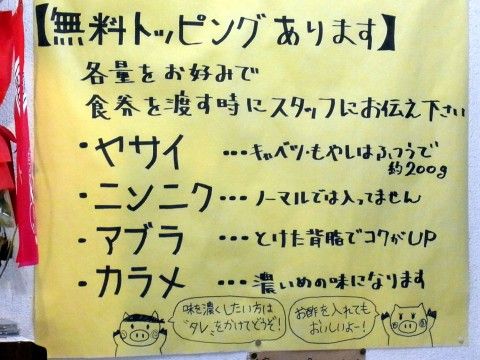 【無料トッピングあります】
各量をお好みで
食券を渡す時にスタッフにお伝え下さい
・ヤサイ …キャベツ・もやしはふつうで
約200g
・ニンニク …ノーマルでは入ってません
・アブラ …とけた背脂でコクがUP
・カラメ …濃いめの味になります
味を濃くしたい方は
〝タレ〟をかけてどうぞ!
お酢を入れても
おいしいよー!